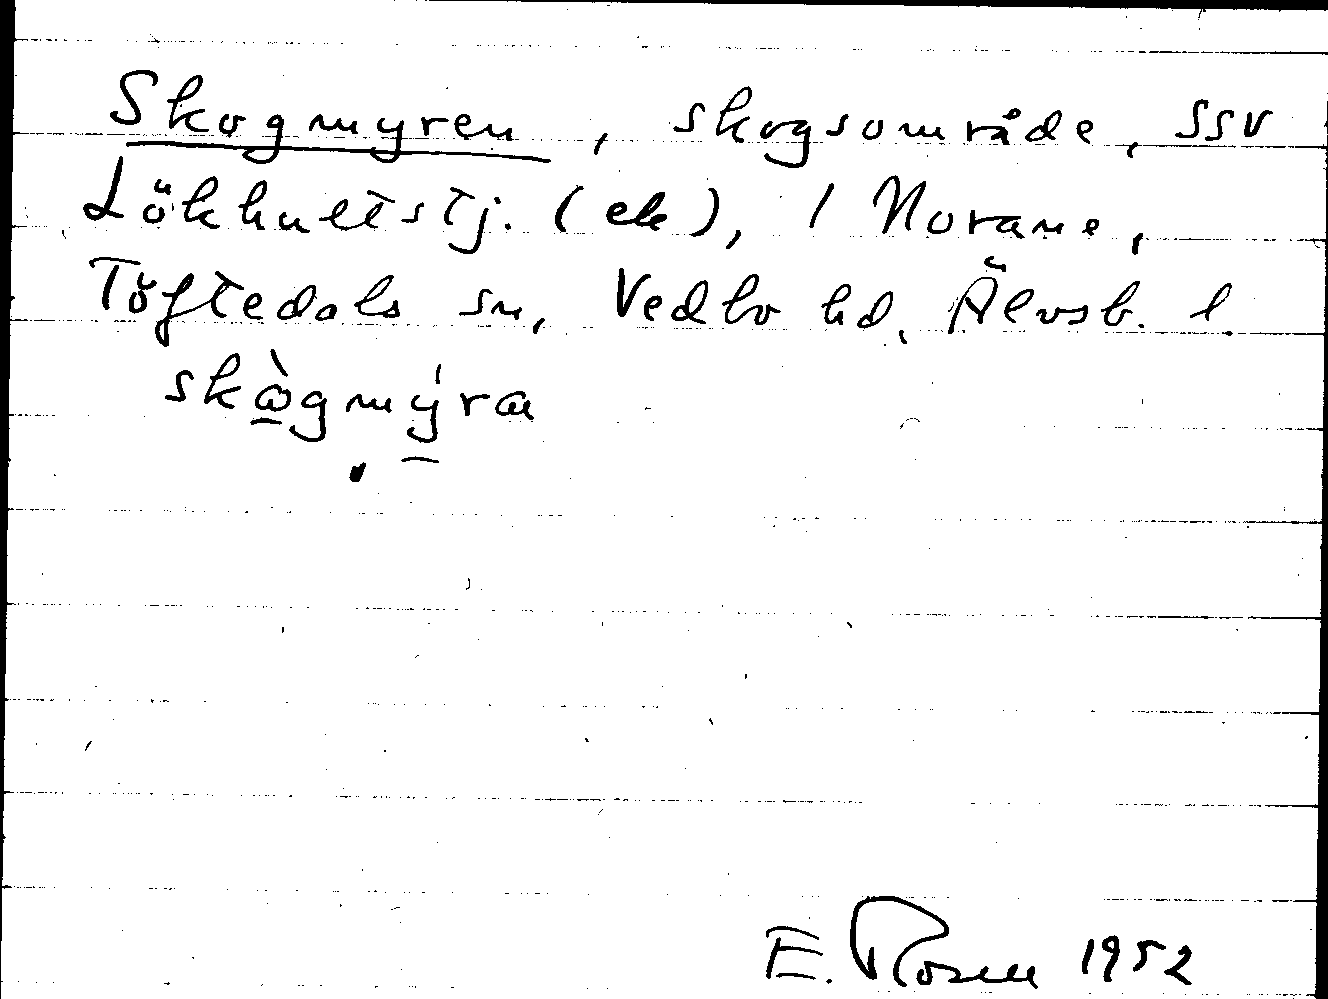 Skogmyren, skogsområde, SSV
Lökhultstj. (ek), 1 Norane,
Töftedals sn, Vedbo hd, Älvsb. l.
skògmýra
E. Rosen 1952